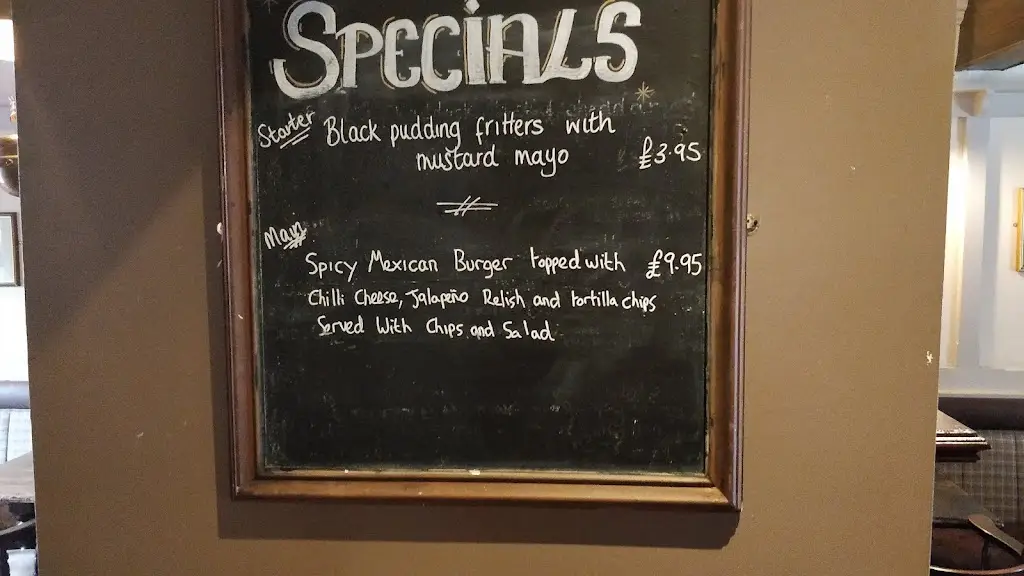 SPECiALS
Starter Black pudding fritters with
mustard mayo £3.95
Main
Spicy Mexican Burger topped with £9.95
Chilli Cheese, Jalapeño Relish and tortilla chips
Served With Chips and Salad.